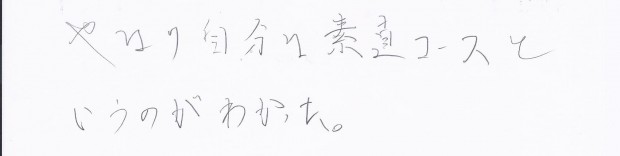 やはり自分は素直コースと
いうのがわかった。